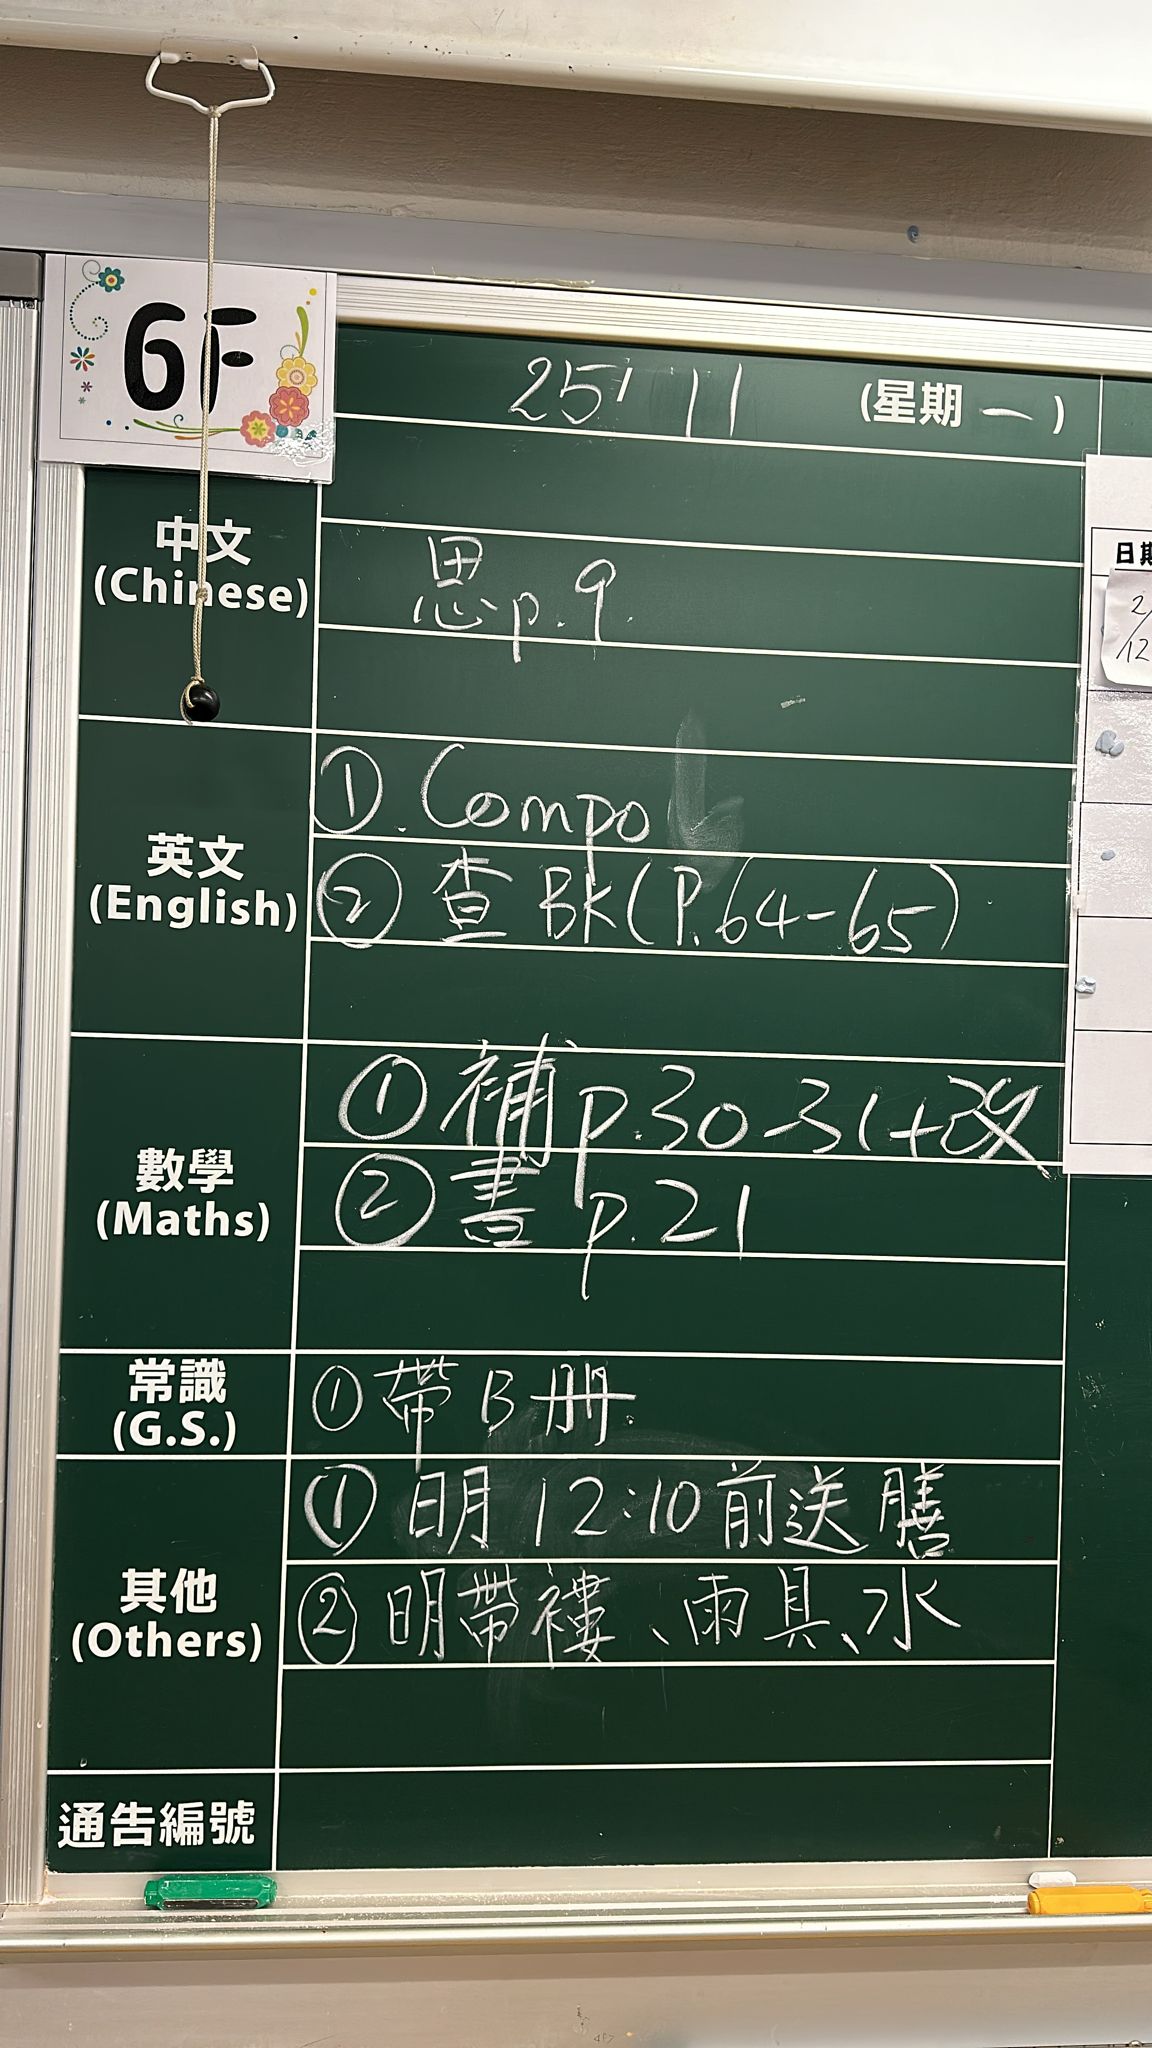 6F
25/11 (星期一)
日期
2/12
中文
(Chinese)
思p.9.
英文
(English)
①.Compo
②查BK(P.64-65)
數學
(Maths)
①補p.30-31+改
②書p.21
常識
(G.S.)
①帶B冊.
其他
(Others)
①明12:10前送膳
②明帶褸、雨具、水
通告編號